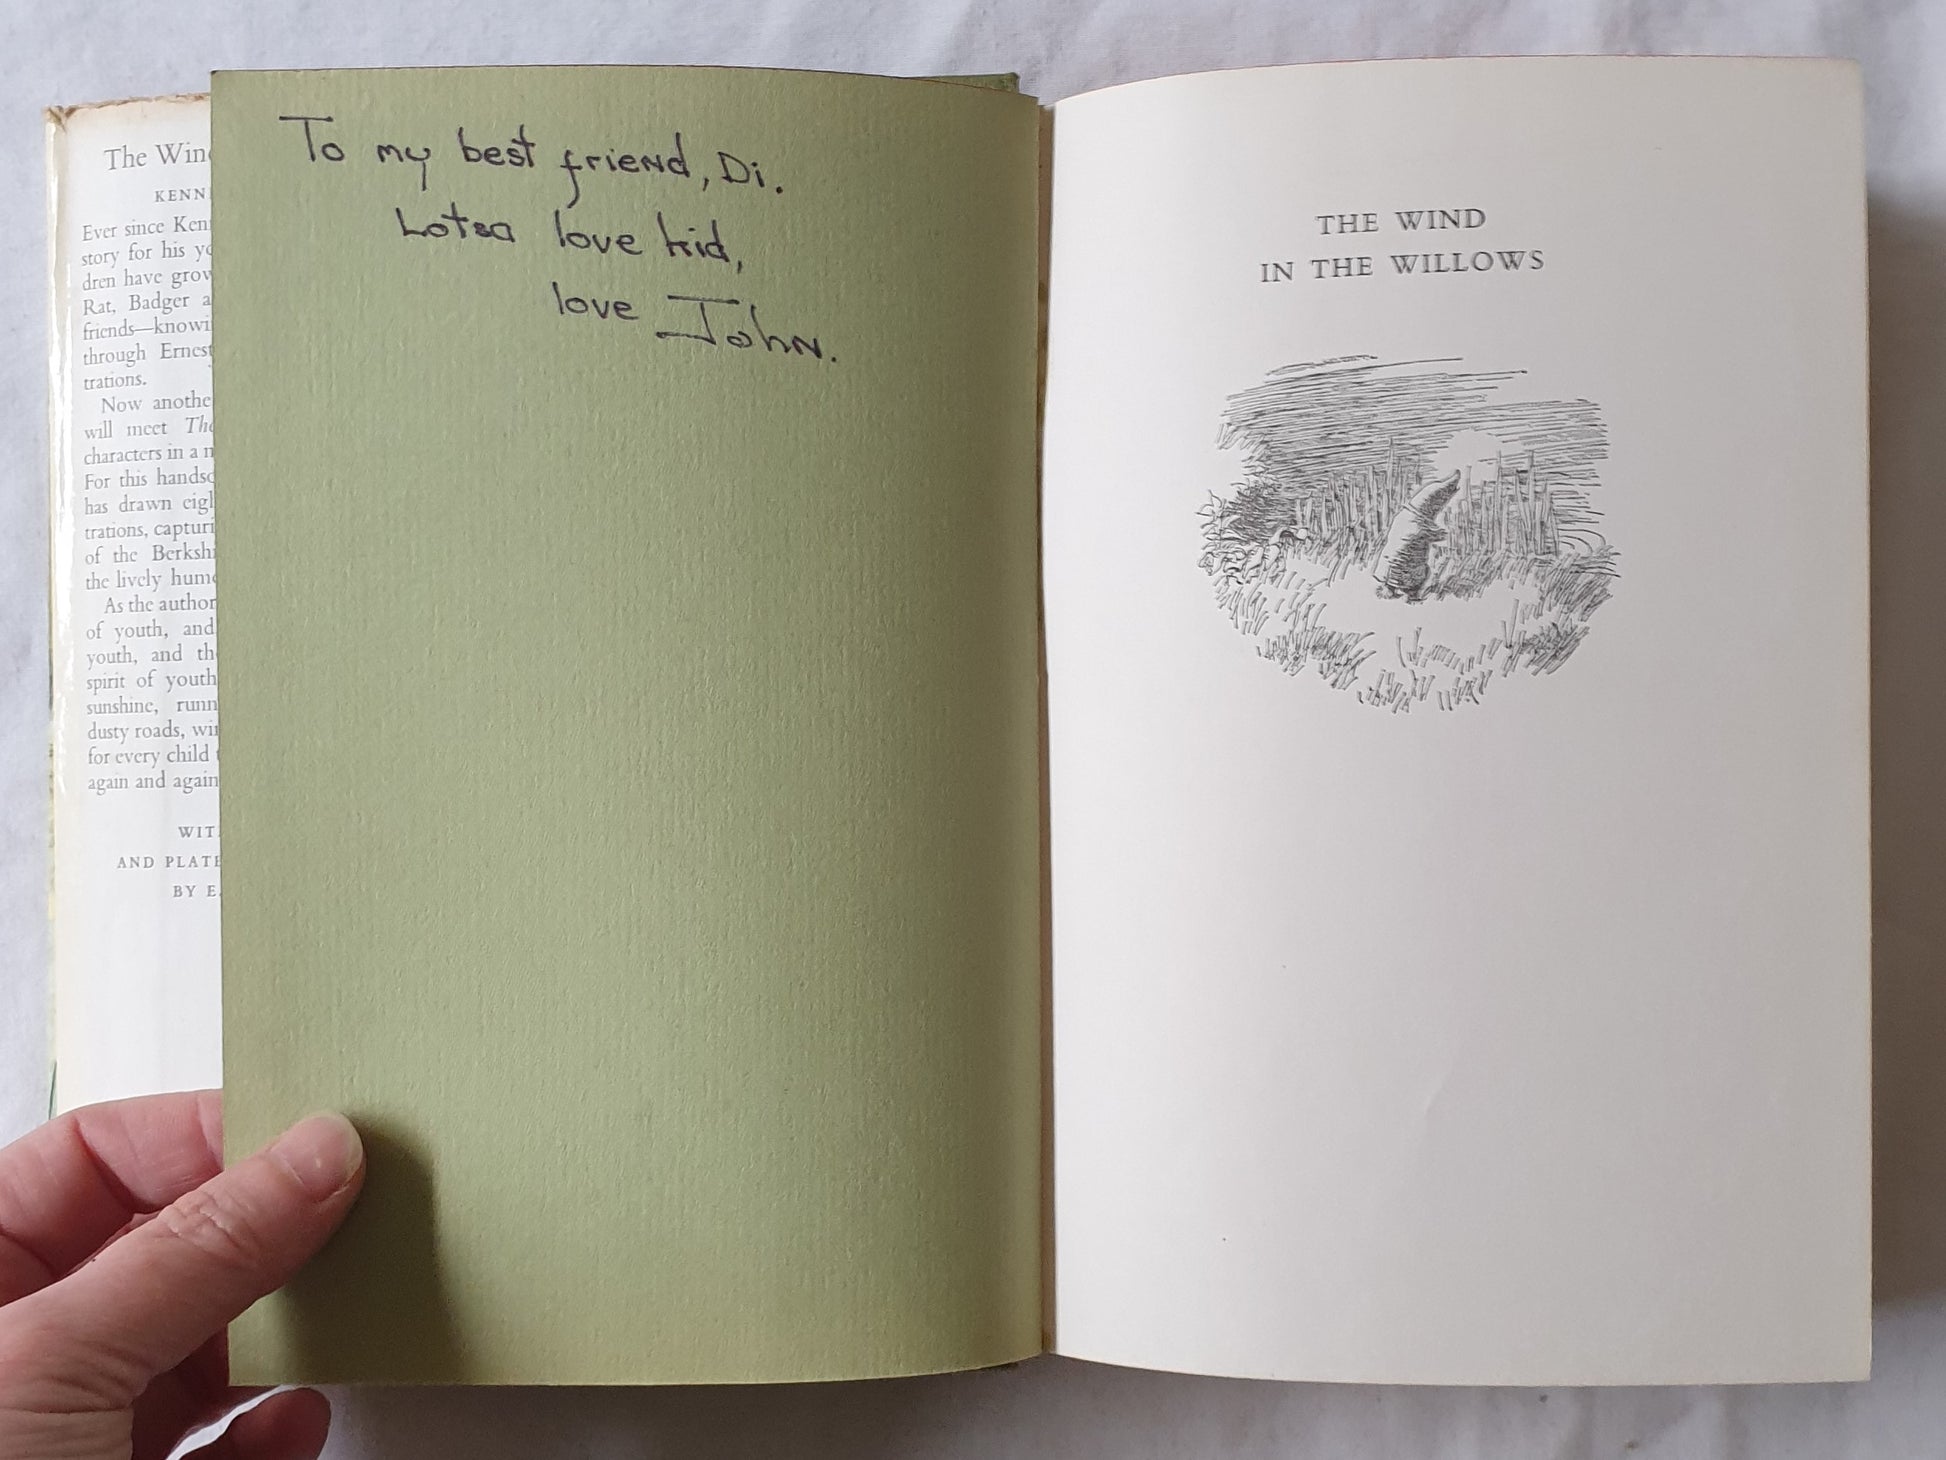 The Win
KENN
Ever since Ken
story for his yo
dren have grow
Rat, Badger a
friends—knowi
through Ernest
trations.
Now anothe
will meet The
characters in a n
For this handso
has drawn eigh
trations, capturi
of the Berkshi
the lively humo
As the author
of youth, and
youth, and th
spirit of youth
sunshine, runn
dusty roads, win
for every child
again and again
WIT
AND PLATE
BY E.
To my best friend, Di.
Lotsa love kid,
love John.
THE WIND
IN THE WILLOWS